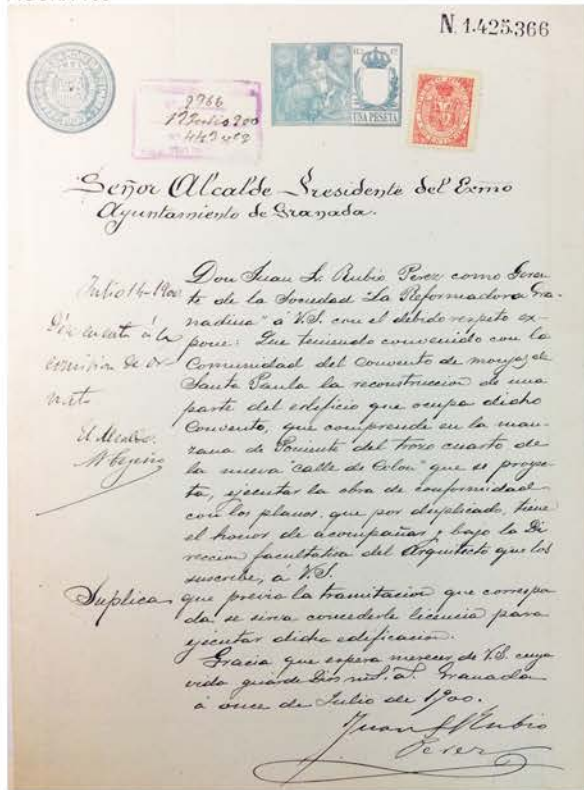 N. 1.425.366
UNA PESETA
9966
17 Julio 900
443 vº 2
Señor Alcalde Presidente del Exmo
Ayuntamiento de Granada.
Julio 14-1900
Dése cuenta á la
comision de Or-
nato
El Alcalde.
Don Juan L. Rubio Perez, como Geren-
te de la Sociedad "La Reformadora Gra-
nadina" á V.S. con el debido respeto ex-
pone: Que teniendo convenido con la
Comunidad del Convento de monjas de
Santa Paula la reconstruccion de una
parte del edificio que ocupa dicho
Convento, que comprende en la man-
zana de Poniente del trozo cuarto de
la nueva "calle de Colon" que se proyec-
ta, ejecutar la obra de conformidad
con los planos, que por duplicado, tiene
el honor de acompañar y bajo la Di
reccion facultativa del Arquitecto que los
suscribe, á V.S.
Suplica que previa la tramitacion que correspon
da se sirva concederle licencia para
ejecutar dicha edificacion.
Gracia que espera merecer de V.S. cuya
vida guarde Dios m.s. a.s. Granada
á once de Julio de 1900.
Juan L Rubio
Perez